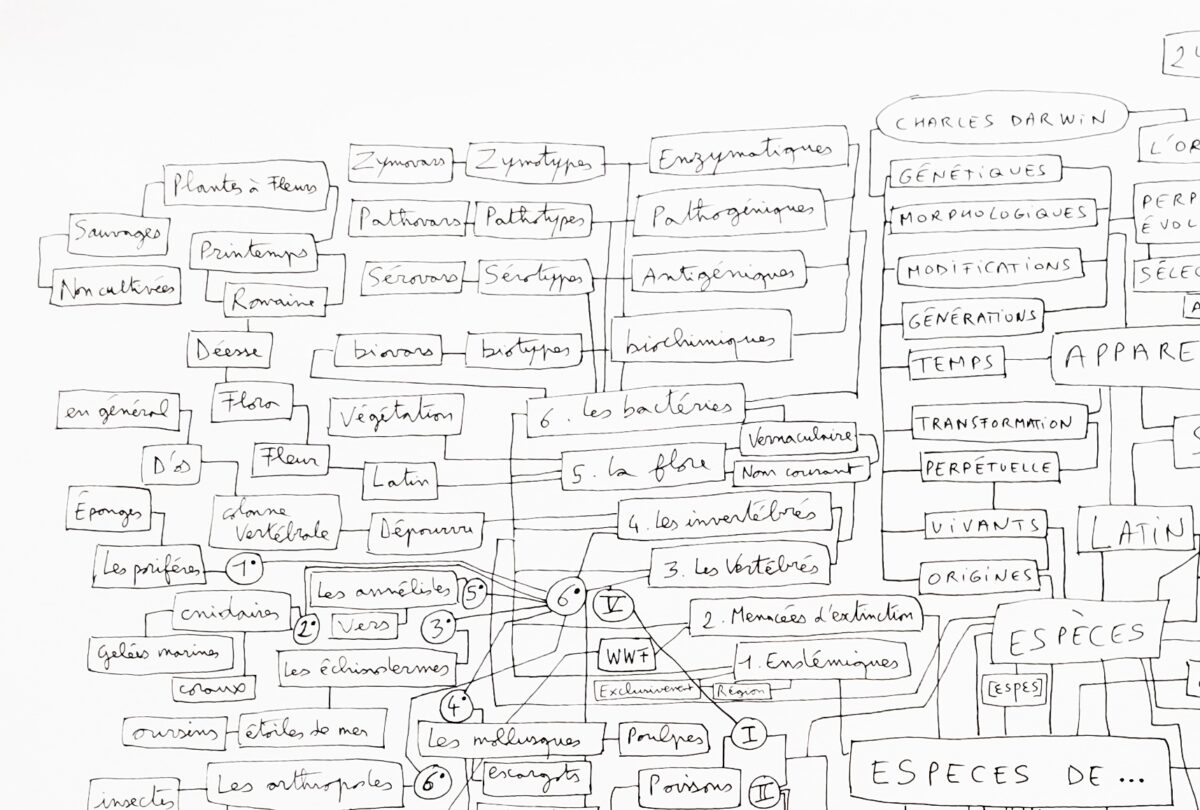 24
CHARLES DARWIN
L'OR
Zymovars
Zymotypes
Enzymatiques
GÉNÉTIQUES
Plantes à Fleurs
Pathovars
Pathotypes
Pathogéniques
MORPHOLOGIQUES
PERP
ÉVOL
Sauvages
Printemps
Sérovars
Sérotypes
Antigéniques
MODIFICATIONS
SÉLEC
Non cultivées
Romaine
GÉNÉRATIONS
A
Déesse
biovars
biotypes
biochimiques
TEMPS
APPARE
en général
Flora
Végétation
6. Les bactéries
TRANSFORMATION
Vernaculaire
S
D'os
Fleur
Latin
5. La flore
Nom courant
PERPÉTUELLE
Éponges
colonne
Vertébrale
Dépourvu
4. Les invertébrés
VIVANTS
LATIN
Les porifères
1°
3. Les Vertébrés
ORIGINES
Les annélides
5°
6°
V
cnidaires
2°
Vers
3°
2. Menacées d'extinction
ESPÈCES
Gelées marines
Les échinodermes
WWF
1. Endémiques
coraux
Exclusivement
Région
[ESPES]
4°
oursins
étoiles de mer
Les mollusques
Poulpes
I
insectes
Les arthropodes
6°
escargots
Poissons
II
ESPECES DE ...